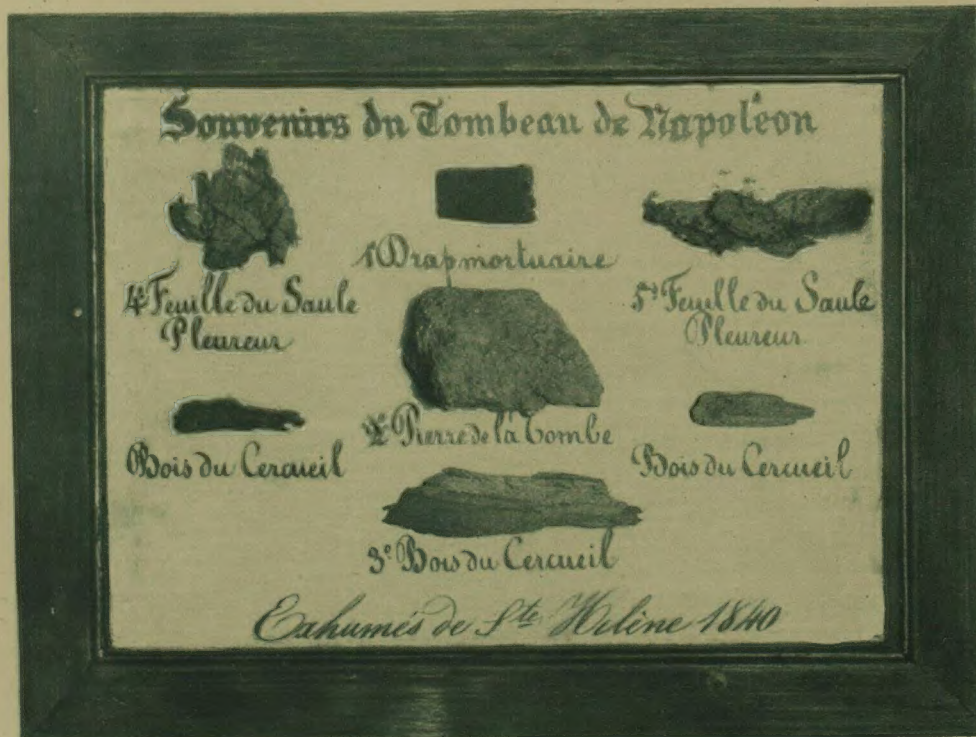 Souvenirs du Tombeau de Napoléon
1 Drap mortuaire
4e Feuille du Saule
Pleureur
5e Feuille du Saule
Pleureur
2e Pierre de la Tombe
Bois du Cercueil
Bois du Cercueil
3e Bois du Cercueil
Exhumés de Ste Hélène 1840